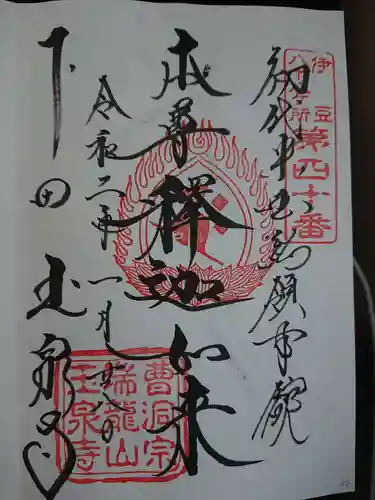 伊豆
八十八ヶ所
第四十番
本尊釋迦如来
令和二年一月廿八日
下田 玉泉寺
曹洞宗
瑞龍山
玉泉寺